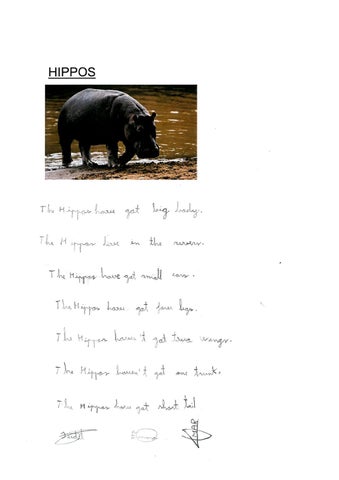 HIPPOS
The Hippos have got big body.
The Hippos live in the rivers.
The Hippos have got small ears.
The Hippos have got four legs.
The Hippos haven't got two wings.
The Hippos haven't got one trunk.
The Hippos have got short tail